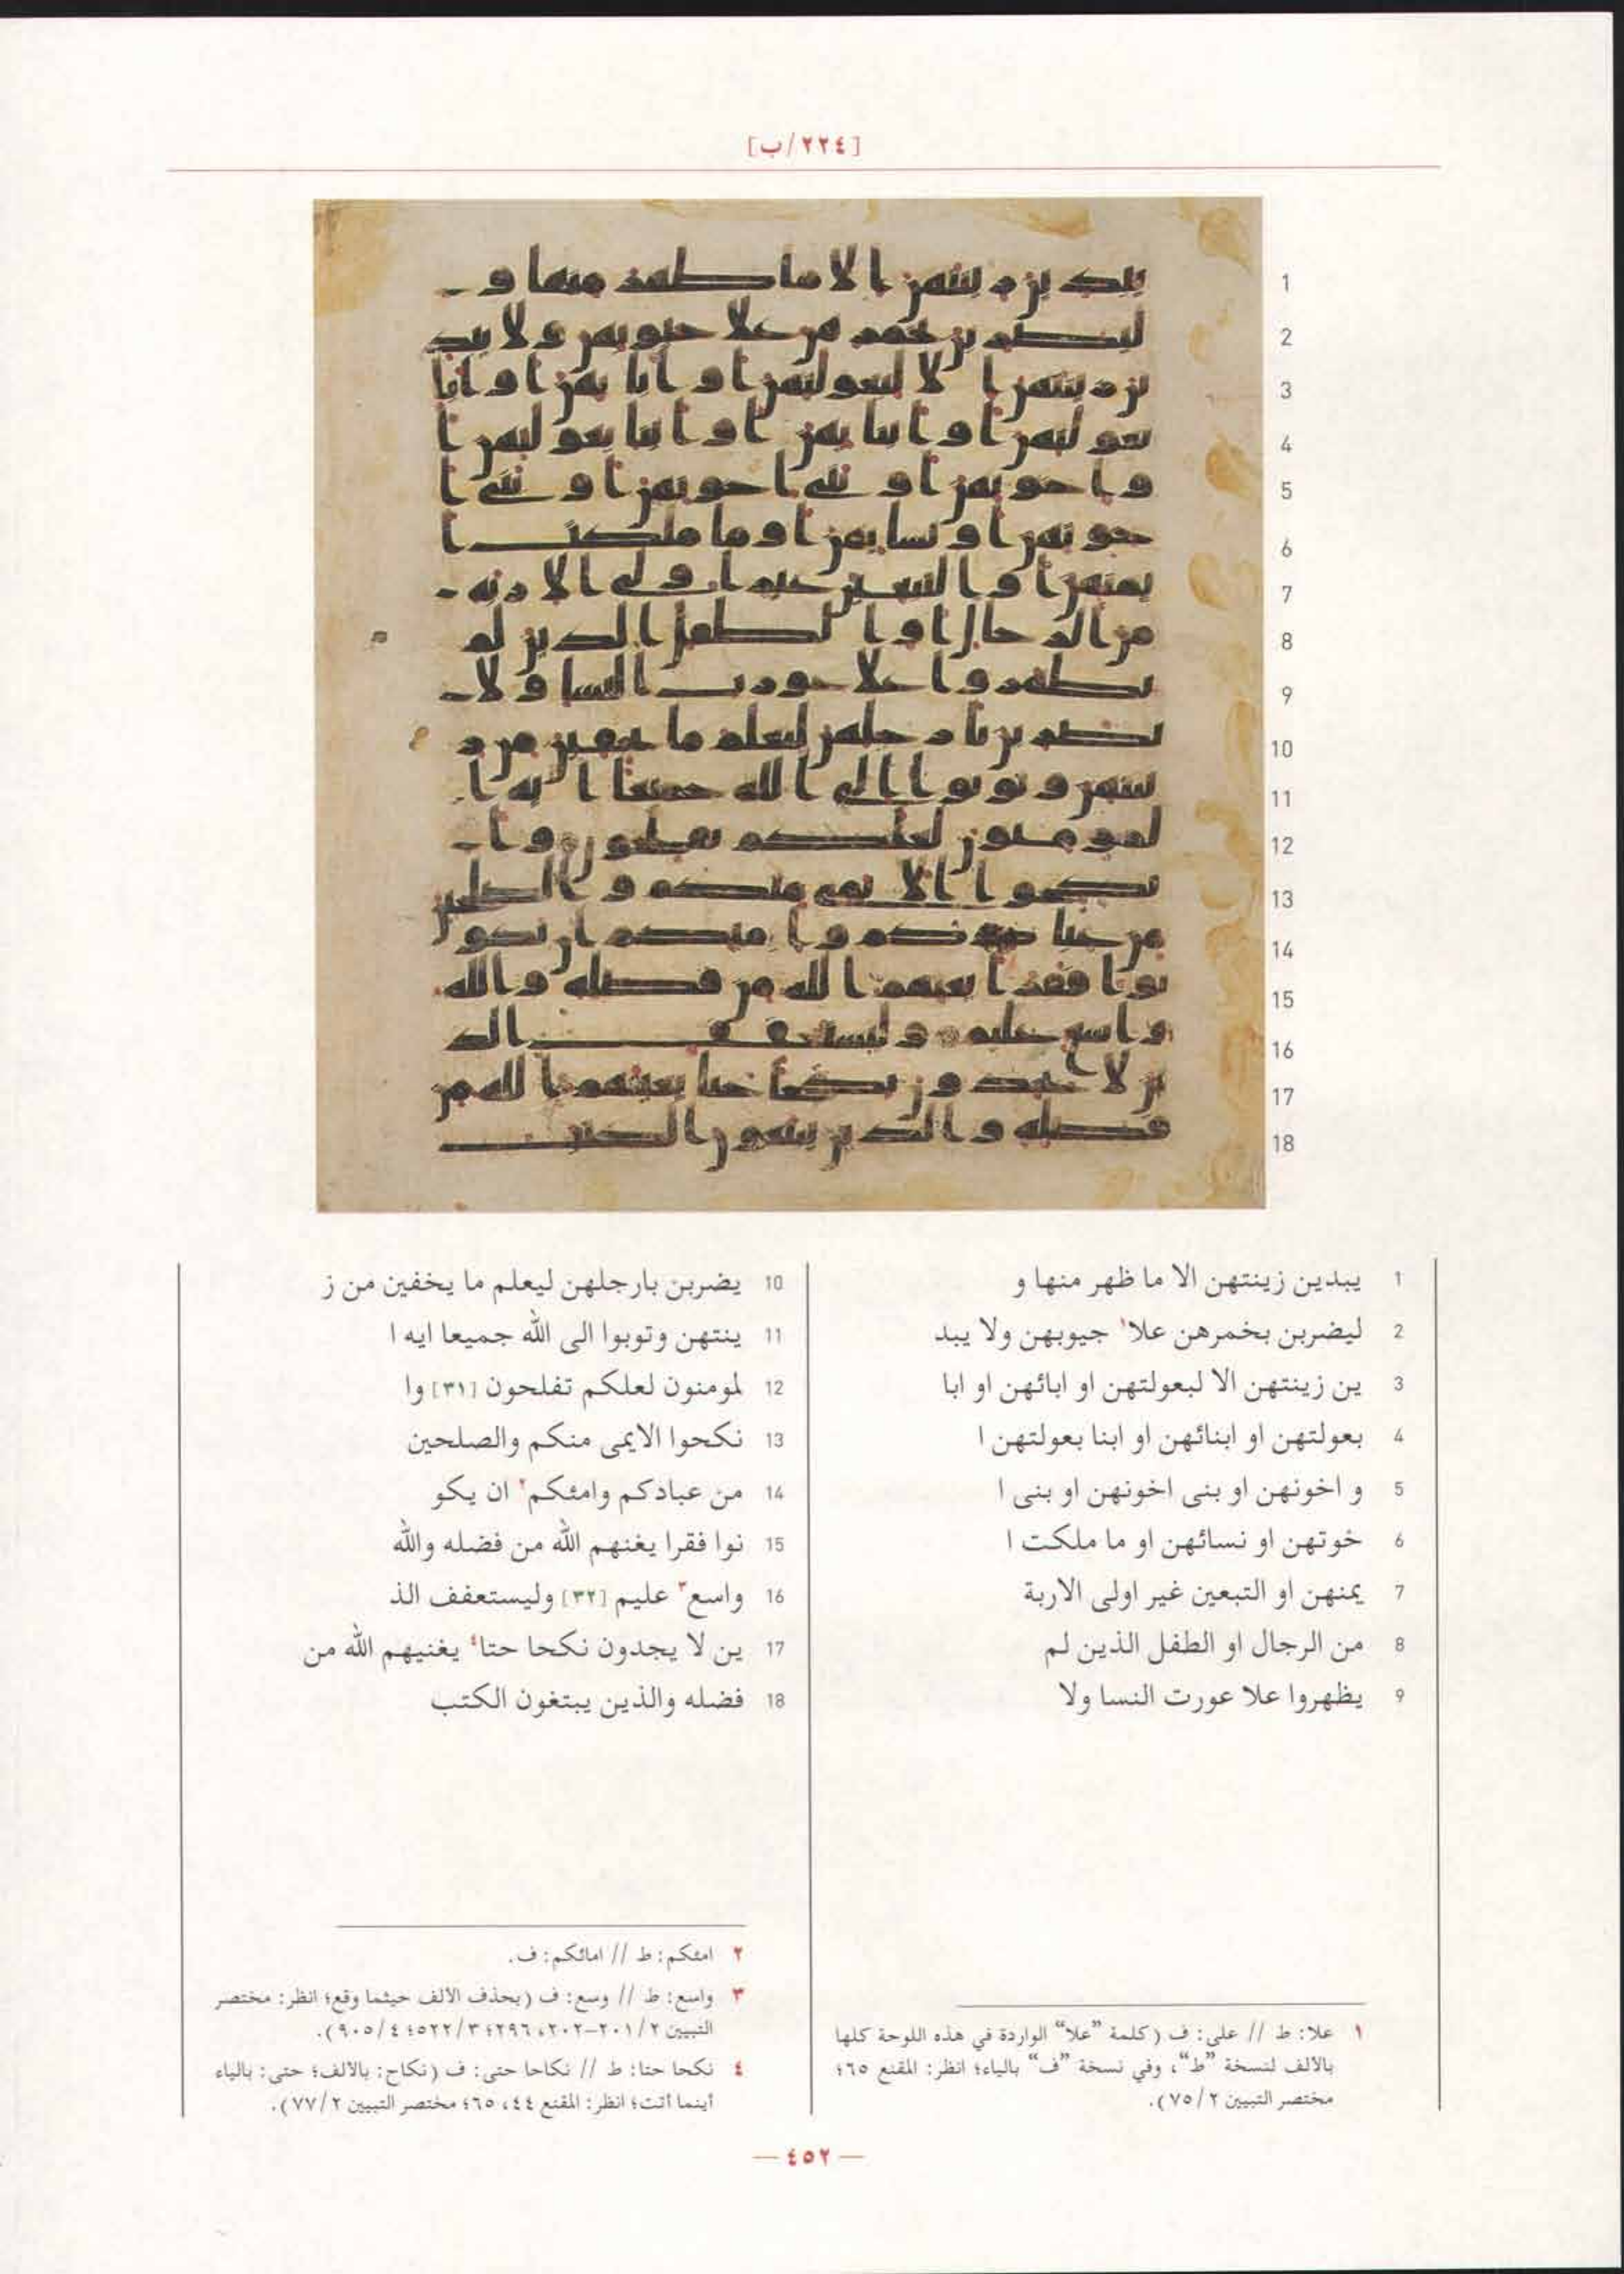 [٢٢٤/ب]
1 يبدين زينتهن الا ما ظهر منها و
2 ليضربن بخمرهن علا١ جيوبهن ولا يبد
3 ين زينتهن الا لبعولتهن او ابائهن او ابا
4 بعولتهن او ابنائهن او ابنا بعولتهن ا
5 و اخونهن او بنى اخونهن او بنى ا
6 خوتهن او نسائهن او ما ملكت ا
7 يمنهن او التبعين غير اولى الاربة
8 من الرجال او الطفل الذين لم
9 يظهروا علا عورت النسا ولا
10 يضربن بارجلهن ليعلم ما يخفين من ز
11 ينتهن وتوبوا الى الله جميعا ايه ا
12 لمومنون لعلكم تفلحون [٣١] وا
13 نكحوا الايمى منكم والصلحين
14 من عبادكم وامئكم٢ ان يكو
15 نوا فقرا يغنهم الله من فضله والله
16 واسع٣ عليم [٣٢] وليستعفف الذ
17 ين لا يجدون نكحا حتا٤ يغنيهم الله من
18 فضله والذين يبتغون الكتب
١ علا: ط // على: ف (كلمة "علا" الواردة في هذه اللوحة كلها
بالألف لنسخة "ط"، وفي نسخة "ف" بالياء؛ انظر: المقنع ٦٥؛
مختصر التبيين ٧٥/٢).
٢ امئكم: ط // امائكم: ف.
٣ واسع: ط // وسع: ف (بحذف الألف حيثما وقع؛ انظر: مختصر
التبيين ٢٠١/٢-٢٠٢، ٢٩٦؛ ٥٢٢/٣؛ ٩٠٥/٤).
٤ نكحا حتا: ط // نكاحا حتى: ف (نكاح: بالألف؛ حتى: بالياء
أينما أتت؛ انظر: المقنع ٤٤، ٦٥؛ مختصر التبيين ٧٧/٢).
— ٤٥٢ —